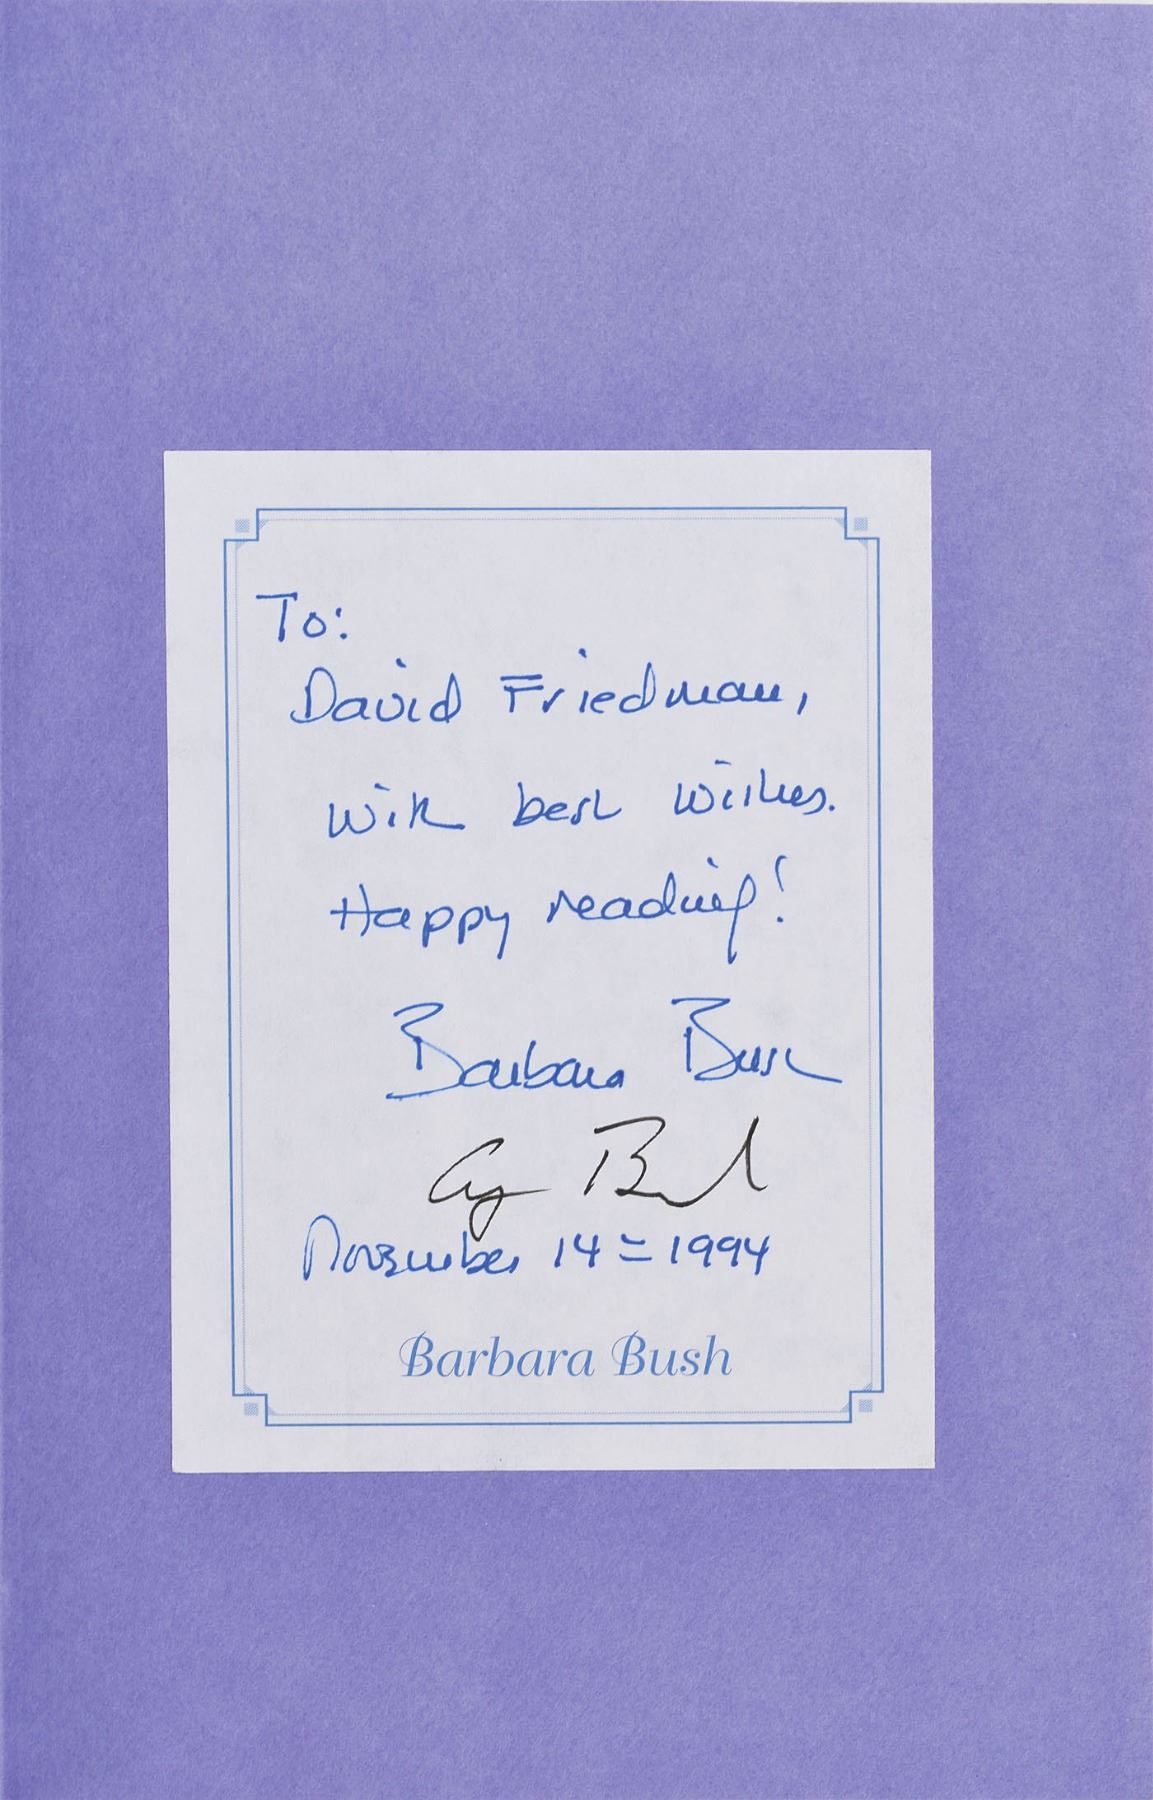 To:
David Friedman,
With best wishes.
Happy reading!
Barbara Bush
Gg Bush
November 14 = 1994
Barbara Bush